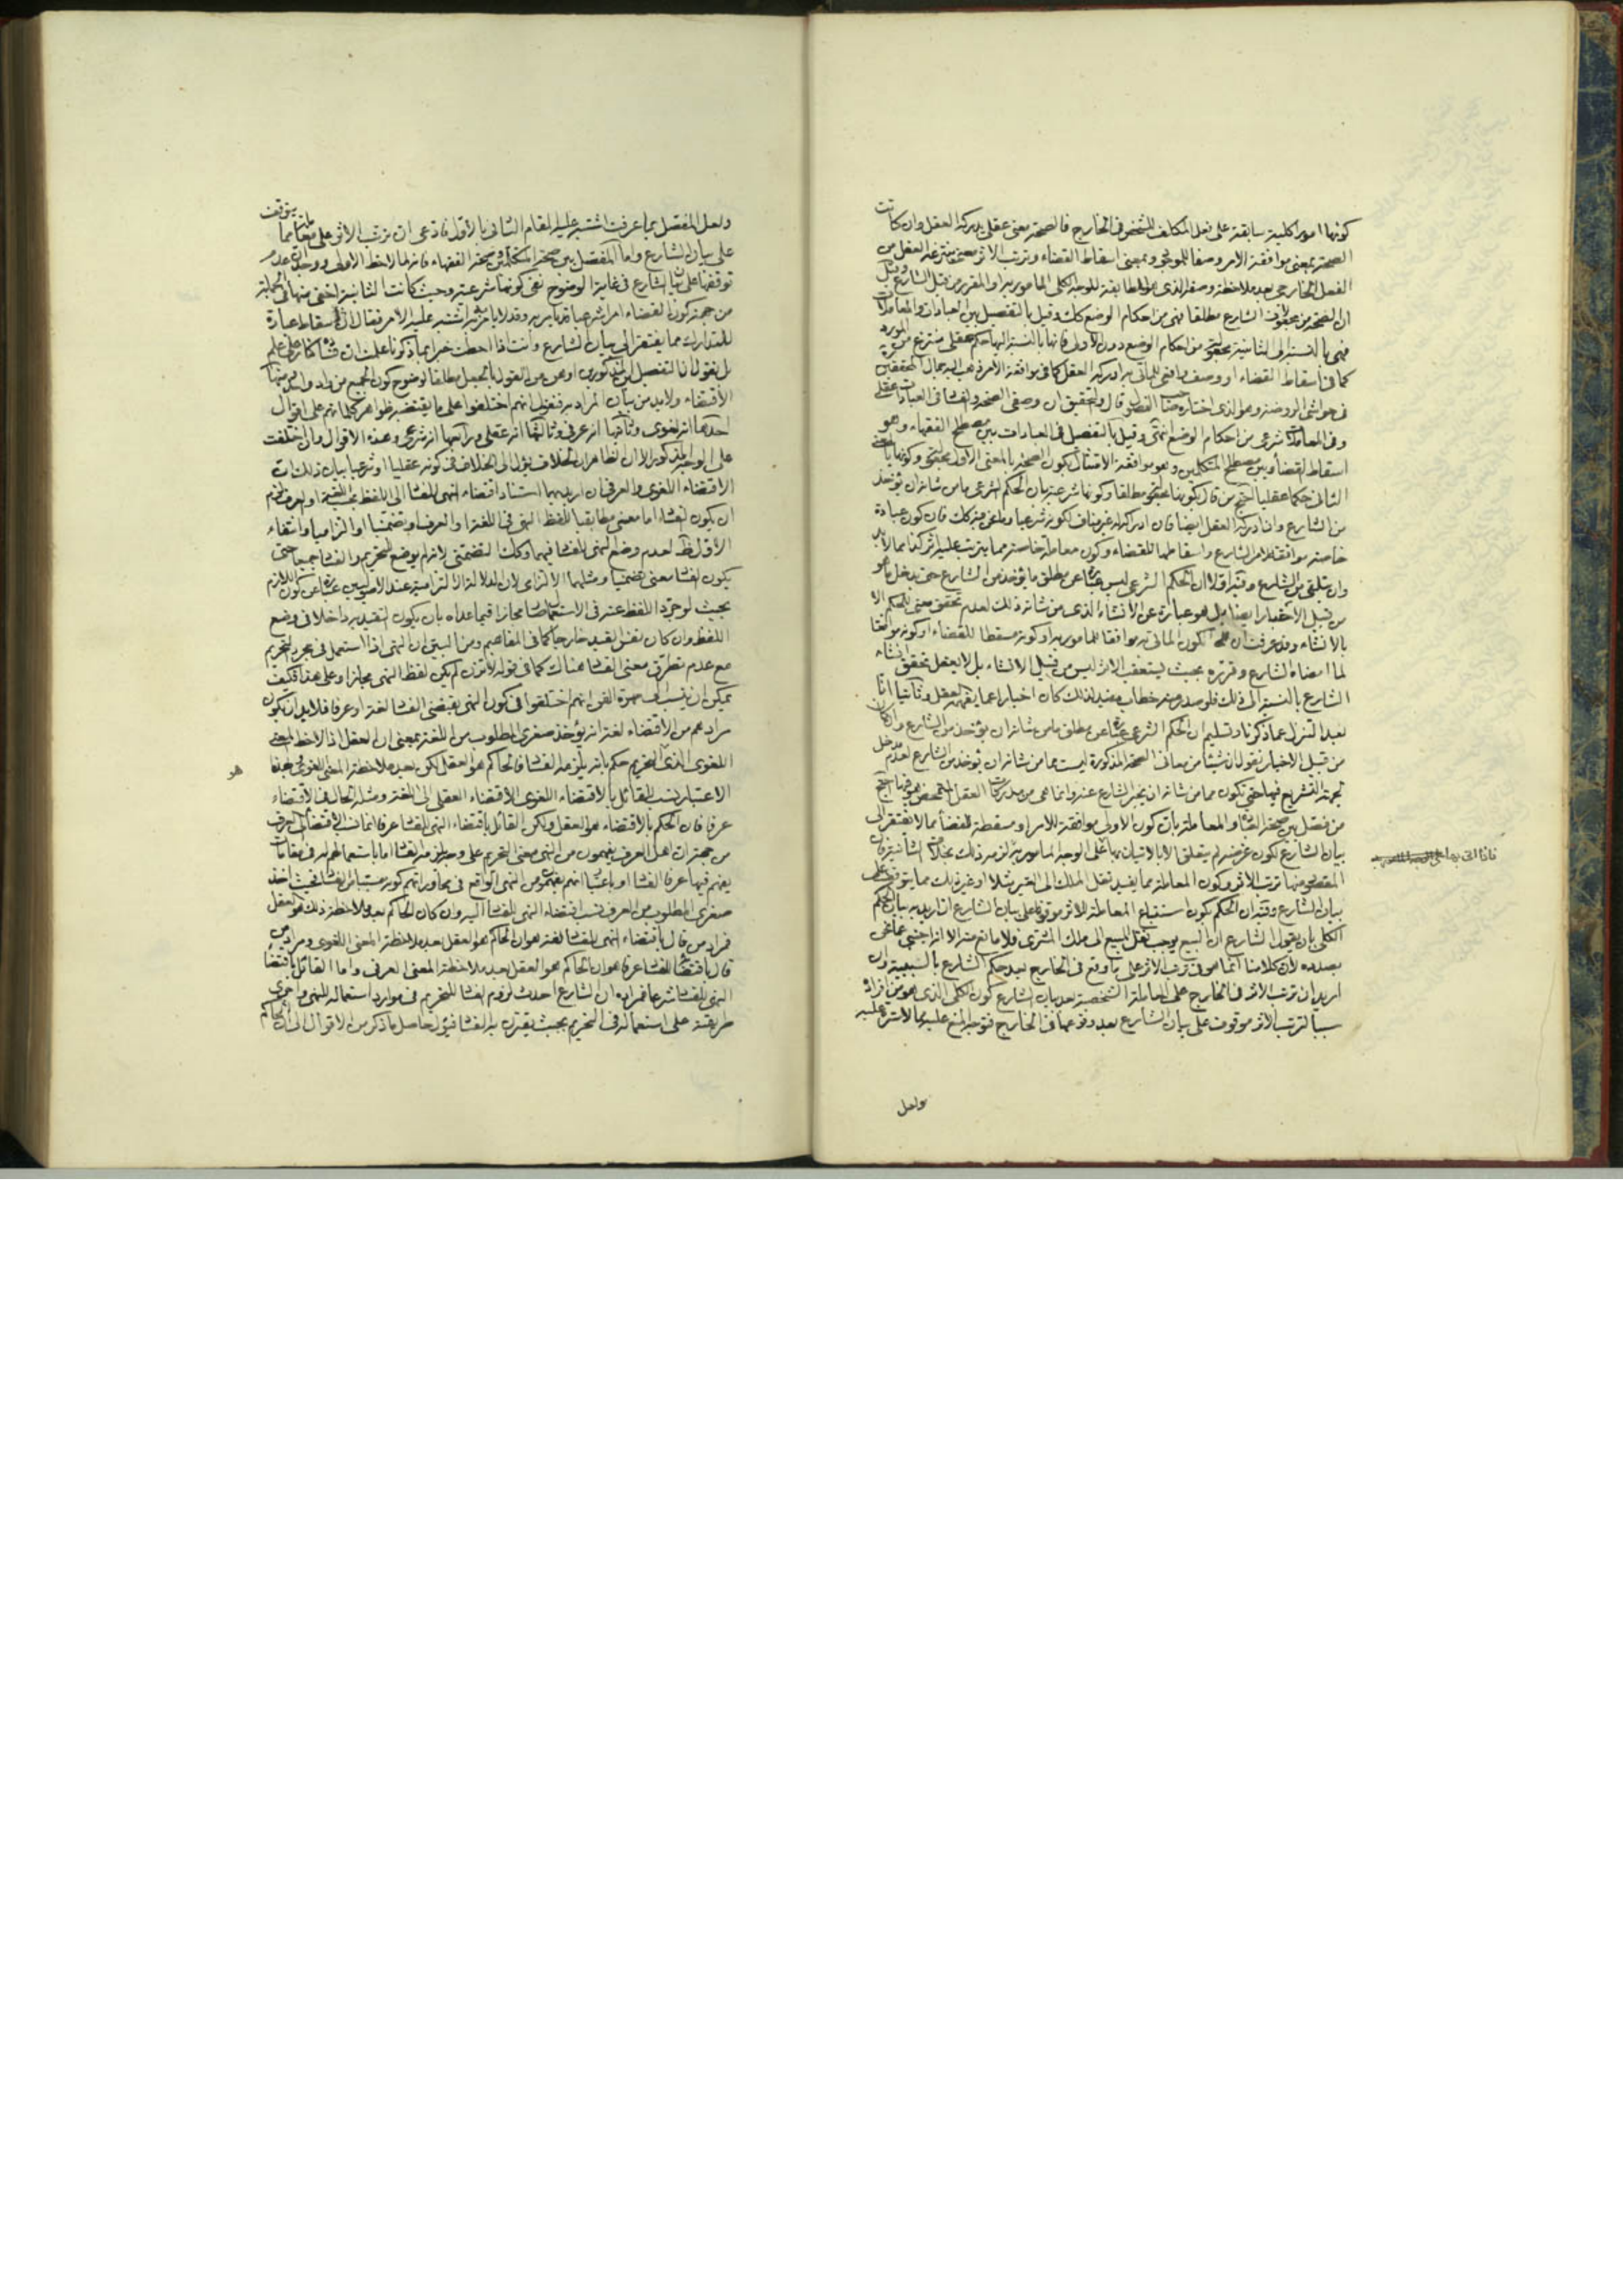 كونها امورا كلية سابقة على فعل المكلف المتشخص فى الخارج فالصحة معنى عقلى يدركه العقل وان كانت
الصحة بمعنى موافقة الامر وصفا للموجود وبمعنى اسقاط القضاء وترتب الاثر معنى ينتزعه العقل من
الفعل الخارجى بعد ملاحظة وصفه الذى هو المطابقة للوجه الكلى المامور به او المقرر من قبل الشارع وقيل
ان الصحة من مطلقا فهى من احكام الوضع كك وقيل بالتفصيل بين العبادات والمعاملات
فهى بالنسبة الى الثانية من احكام الوضع دون الاولى فانها بالنسبة اليها حكم عقلى منتزع من
كما فى اسقاط القضاء او وصف واقعى للماتى به ادركه العقل كما فى موافقة الامر ذهب اليه جمال المحققين
فى حواشى الروضة وهو الذى اختاره صاحب الفصول قال والتحقيق ان وصفى الصحة والفساد فى العبادات عقلى
وفى المعاملات شرعى من احكام الوضع انتهى وقيل بالتفصيل فى العبادات بين مصطلح الفقهاء وهو
اسقاط القضاء وبين مصطلح المتكلمين وهو موافقة الامتثال بكون الصحة بالمعنى الاول وكونها بالمعنى
الثانى حكما عقليا احتج من قال بكونها مطلقا وكونها شرعية بان الحكم الشرعى ما من شانه ان يؤخذ
من الشارع وان ادركه العقل ايضا فان ادراكه غير مناف لكونه شرعيا وما نحن فيه كك فان كون عبادة
خاصة موافقة لامر الشارع واسقاطها للقضاء وكون معاملة خاصة مما يترتب عليه اثر كذا مما لابد
وان يتلقى من الشارع وفيه اولا ان الحكم الشرعى ليس عبارة عن مطلق ما يؤخذ من الشارع حتى يدخل ما هو
من قبيل الاخبار ايضا بل هو عبارة عن الانشاء الذى من شانه ذلك لعدم تحقق معنى للحكم الا
بالانشاء وقد عرفت ان كون الماتى به موافقا للمامور به او كونه مسقطا للقضاء او كونه موافقا
لما امضاه الشارع وقرره بحيث يستعقب الاثر ليس من قبيل الانشاء بل لا يعقل تحقق انشاء
الشارع بالنسبة الى ذلك فلو صدر منه خطاب مفيد لذلك كان اخبارا عما يفهمه العقل وثانيا انا
بعد التنزل عما ذكرنا وتسليم ان الحكم الشرعى عبارة عن مطلق ما من شانه ان يؤخذ من الشارع وان كان
من قبيل الاخبار نقول ان شيئا من معانى الصحة المذكورة ليست مما من شانه ان يؤخذ من الشارع لعدم مدخل
لجهة التشريع فيها حتى تكون مما من شانه ان يخبر الشارع عنه وانما هى من مدركات العقل احتج
من فصل بين صحة العبادة والمعاملة بان كون الاولى موافقة للامر او مسقطة للقضاء مما لا يفتقر الى
بيان الشارع لكون غرضه لم يتعلق الا بالاتيان بها على الوجه المامور به لزمه ذلك بخلاف الثانية فان
المقصود منها ترتب الاثر وكون المعاملة مما يفيد نقل الملك الى الغير مثلا او غير ذلك مما يتوقف على
بيان الشارع وفيه ان الحكم بكون استتباع المعاملة للاثر موقوفا على بيان الشارع ان اريد به بيان الحكم
الكلى بان يقول الشارع ان البيع يوجب نقل المبيع الى ملك المشترى فلا مانع منه الا انه اجنبى عما نحن
بصدده لان كلامنا انما هو فى ترتب الاثر على ما وقع فى الخارج بعد حكم الشارع بالسببية وان
اريد ان ترتب الاثر فى الخارج على المعاملة الشخصية بعد بيان الشارع كون الكلى الذى هو من افراده
سببا لترتب الاثر موقوف على بيان الشارع بعد وقوعها فى الخارج فتوجه المنع عليه مما لا سترة عليه
ولعل
فاذا اتى بها على
ولعل المفصل بما عرفت اشتبه عليه المقام الثانى بالاول فادعى ان ترتب الاثر على معاملة مما يتوقف
على بيان الشارع واما المفصل بين صحة المتكلمين وصحة الفقهاء فانه لما لاحظ الاولى ووجد عدم
توقفها على بيان الشارع فى غاية الوضوح نفى كونها شرعية وحيث كانت الثانية اخفى منها فى الجملة
من جهة كون القضاء امرا شرعيا قد يامر به وقد لا يامر به اشتبه عليه الامر فقال ان اسقاط عبارة
للتدارك مما يفتقر الى بيان الشارع وانت اذا احطت خبرا بما ذكرنا علمت ان
بل نقول ان التفصيلين المذكورين اوهن من القول بالجعل مطلقا لوضوح كون الجميع من واد واحد ومنها
الاقتضاء ولا بد من بيان المراد به فنقول انهم اختلفوا على ما يقتضيه ظواهر كلماتهم على اقوال
احدها انه لغوى وثانيها انه عرفى وثالثها انه عقلى ورابعها انه شرعى وهذه الاقوال وان اختلفت
على الوجه المذكور الا ان الظاهر ان الخلاف يؤل الى الخلاف فى كونه عقليا او شرعيا بيان ذلك ان
الاقتضاء اللغوى والعرفى ان اريد بهما استناد اقتضاء النهى للفساد الى اللفظ بحسب اللغة او العرف لزم
ان يكون الفساد اما معنى مطابقيا للفظ النهى فى اللغة او العرف او تضمنيا او التزاميا وانتفاء
الاول ظاهر لعدم وضع النهى للفساد فيهما وكذلك التضمنى لانه لم يوضع للتحريم والفساد جميعا حتى
يكون الفساد معنى تضمنيا ومثلهما الالتزامى لان الدلالة الالتزامية عند الاصوليين عبارة عن كون اللازم
بحيث لو جرد اللفظ عنه فى الاستعمال صار مجازا فيما عداه بان يكون التقييد به داخلا فى وضع
اللفظ وان كان نفس القيد خارجا كما فى المفاهيم ومن البين ان النهى اذا استعمل فى مجرد التحريم
مع عدم تطرق معنى الفساد هناك كما فى قوله لا تزن لم يكن لفظ النهى مجازا وعلى هذا فكيف
يمكن ان ينسب الى مهرة الفن انهم اختلفوا فى كون النهى يقتضى الفساد لغة او عرفا فلا بد ان يكون
مرادهم من الاقتضاء لغة انه يؤخذ صغرى المطلوب من اللغة بمعنى ان العقل اذا لاحظ المعنى
اللغوى الذى هو التحريم حكم بانه يلزمه الفساد فالحاكم هو العقل لكن بعد ملاحظة المعنى اللغوى فبهذا
الاعتبار نسب القائل بالاقتضاء اللغوى الاقتضاء العقلى الى اللغة ومثله الحال فى الاقتضاء
عرفا فان الحاكم بالاقتضاء هو العقل ولكن القائل باقتضاء النهى للفساد عرفا انما نسب الاقتضاء الى العرف
من جهة ان اهل العرف يفهمون من النهى معنى التحريم على وجه يلزمه الفساد اما باستعمالهم له فى مقامات
يفهم فيها عرفا الفساد او باعتبار انهم يفهمون من النهى الواقع فى محاوراتهم كونه فحيث اخذ
صغرى المطلوب من العرف نسب اقتضاء النهى للفساد اليه وان كان الحاكم بعد ملاحظة ذلك هو العقل
فمراد من قال باقتضاء النهى للفساد لغة هو ان الحاكم هو العقل بعد ملاحظة المعنى اللغوى ومراد من
قال باقتضاء الفساد عرفا هو ان الحاكم هو العقل بعد ملاحظة المعنى العرفى واما القائل باقتضاء
النهى للفساد شرعا فمراده ان الشارع احدث لزوم الفساد للتحريم فى موارد استعماله للنهى واجرى
طريقته على استعماله فى التحريم بحيث يقترن به الفساد فيؤل حاصل ما ذكر من الاقوال الى ان الحاكم
هو